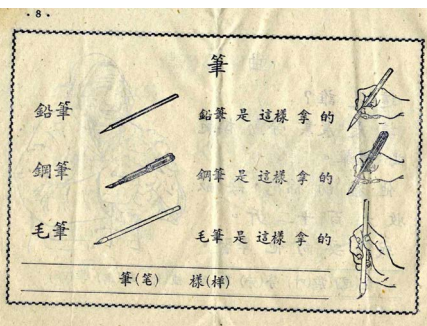 · 8 ·
筆
鉛筆 鉛筆 是 這樣 拿 的
鋼筆 鋼筆 是 這樣 拿 的
毛筆 毛筆 是 這樣 拿 的
筆(笔) 樣(样)